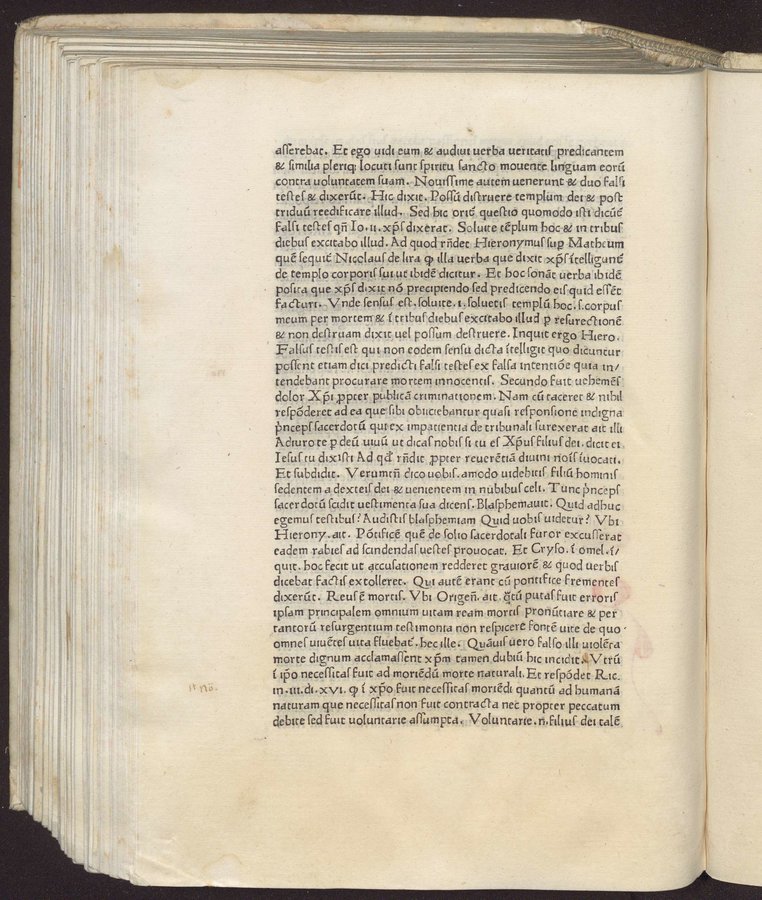 asserebat. Et ego uidi eum & audiui uerba ueritatis predicantem
& similia pleriq; locuti sunt spiritu sancto mouente linguam eorū
contra uoluntatem suam. Nouissime autem uenerunt & duo falsi
testes & dixerūt. Hic dixit. Possū distruere templum dei & post
triduū reedificare illud. Sed hic oriť questio quomodo isti dicūť
falsi testes qn̄ Io. ii. xp̄s dixerat. Soluite tēplum hoc & in tribus
diebus excitabo illud. Ad quod rn̄det Hieronymus sup Matheum
quē sequiť Nicolaus de lira ꝙ illa uerba que dixit xp̄s ītelligunť
de templo corporis sui ut ibidē dicitur. Et hoc sonāt uerba ibidē
posita que xp̄s dixit nō precipiendo sed predicendo eis quid essēt
facturi. Vnde sensus est. soluite .i. soluetis templū hoc .s. corpus
meum per mortem & ī tribus diebus excitabo illud ꝑ resurectionē
& non destruam dixit uel possum destruere. Inquit ergo Hiero.
Falsus testis est qui non eodem sensu dicta ītelligit quo dicuntur
possent etiam dici predicti falsi testes ex falsa intentiōe quia in/
tendebant procurare mortem innocentis. Secundo fuit uehemēs
dolor Xp̄i ꝓpter publicā criminationem. Nam cū taceret & nihil
respōderet ad ea que sibi obiiciebantur quasi responsione indigna
p̄nceps sacerdotū qui ex impatientia de tribunali surexerat ait illi
Adiuro te ꝑ deū uiuū ut dicas nobis si tu es Xp̄us filius dei. dicit ei
Iesus tu dixisti Ad qd̄ rn̄dit ꝓpter reuerētiā diuini nōis īuocati.
Et subdidit. Verumtn̄ dico uobis. amodo uidebitis filiū hominis
sedentem a dexteis dei & uenientem in nubibus celi. Tunc p̄nceps
sacerdotū scidit uestimenta sua dicens. Blasphemauit. Quid adhuc
egemus testibus? Audistis blasphemiam Quid uobis uidetur? Vbi
Hierony. ait. Pōtificē quē de solio sacerdotali furor excusserat
eadem rabies ad scindendas uestes prouocat. Et Cryso. ī omel. ī/
quit. hoc fecit ut accusationem redderet grauiorē & quod uerbis
dicebat factis extolleret. Qui autē erant cū pontifice frementes
dixerūt. Reus ē mortis. Vbi Origen̄. ait. q̄tū putas fuit erroris
ipsam principalem omnium uitam ream mortis pronūtiare & per
tantorū resurgentium testimonia non respicere fontē uite de quo
omnes uiuētes uita fluebat. hec ille. Quāuis uero falso illi uiolēta
morte dignum acclamassent xp̄m tamen dubiū hic incidit. Vtrū
ī ip̄o necessitas fuit ad moriēdū morte naturali. Et respōdet Ric.
in .iii. di. xvi. ꝙ ī xp̄o fuit necessitas moriēdi quantū ad humanā
naturam que necessitas non fuit contracta nec propter peccatum
debite sed fuit uoluntarie assumpta. Voluntarie .n. filius dei talē